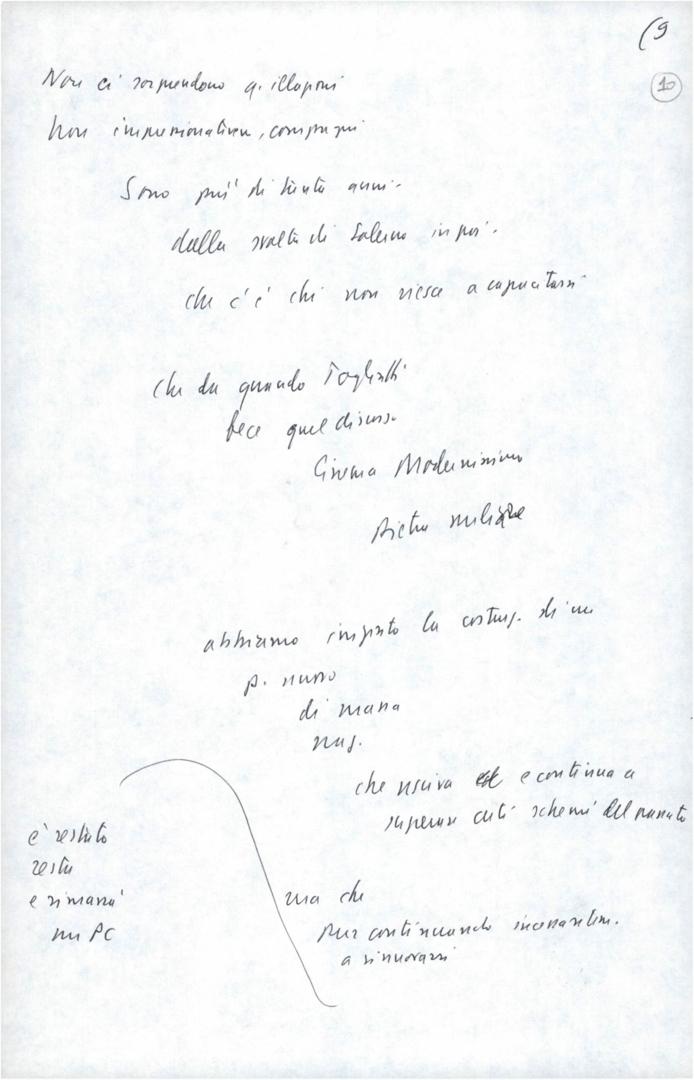 (9
10
Non ci sorprendono q. illusioni
Non impressionatevi, compagni
Sono più di trenta anni.
dalla svolta di Salerno in poi.
che c'è chi non riesce a capacitarsi
che da quando Togliatti
fece quel discorso
Cinema Modernissimo
pietra miliare
abbiamo iniziato la costruz. di un
p. nuovo
di massa
naz.
che usciva e continua a
superare certi schemi del passato
ma che
pur continuando incessantem.
a rinnovarsi
è restato
resta
e rimarrà
un PC